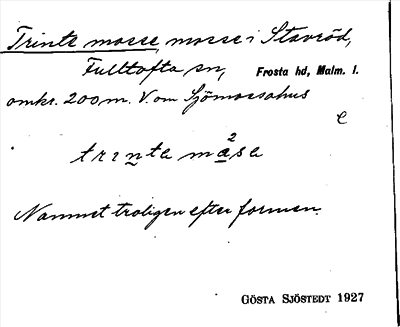 Trinte mosse, mosse i Stavröd,
Fulltofta sn, Frosta hd, Malm. l.
omkr. 200 m. V. om Sjömossahus
e
trinte måse 2
Namnet troligen efter formen.
GÖSTA SJÖSTEDT 1927